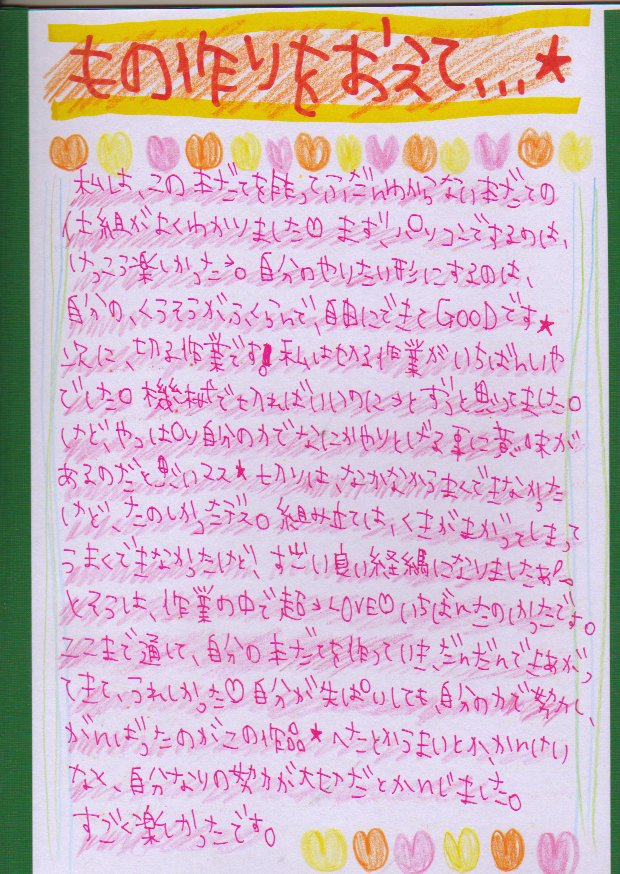 もの作りをおえて...★
私は、この本だてを作って、ふだんわからない本だての
仕組がよくわかりました♡ まず、パソコンでするのは、
けっこう楽しかったぁ。自分のやりたい形にするのは、
自分の、くうそうがふくらんで、自由にできてGOODです★
次に、切る作業です! 私は切る作業がいちばんいや
でした。機械で切ればいいのにぃとずっと思ってました。
けど、やっぱり自分の力でなにかやりとげる事に意味が
あるのだと思いマス★ 切りは、なかなかうまくできなかった
けど、たのしかったデス。組み立ては、くぎがまがってしまって
うまくできなかったけど、すごい良い経縞になりましたぁ!
とそうは、作業の中で超ぉLOVE♡いちばんたのしかったです。
ここまで通して、自分の本だてを作っていき、だんだんできあがっ
てきて、うれしかった♡自分が失ぱいしても、自分の力で努力し、
がんばったのがこの作品★へたとかうまいとか、かんけい
なく、自分なりの努力が大切だとかんじました。
すごく楽しかったです。